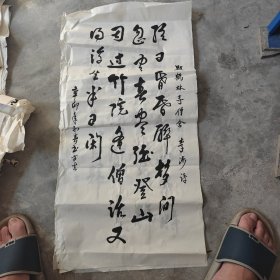 题鹤林寺僧舍 李涉诗
终日昏昏醉梦间
忽闻春尽强登山
因过竹院逢僧话又
得浮生半日闲
辛卯年